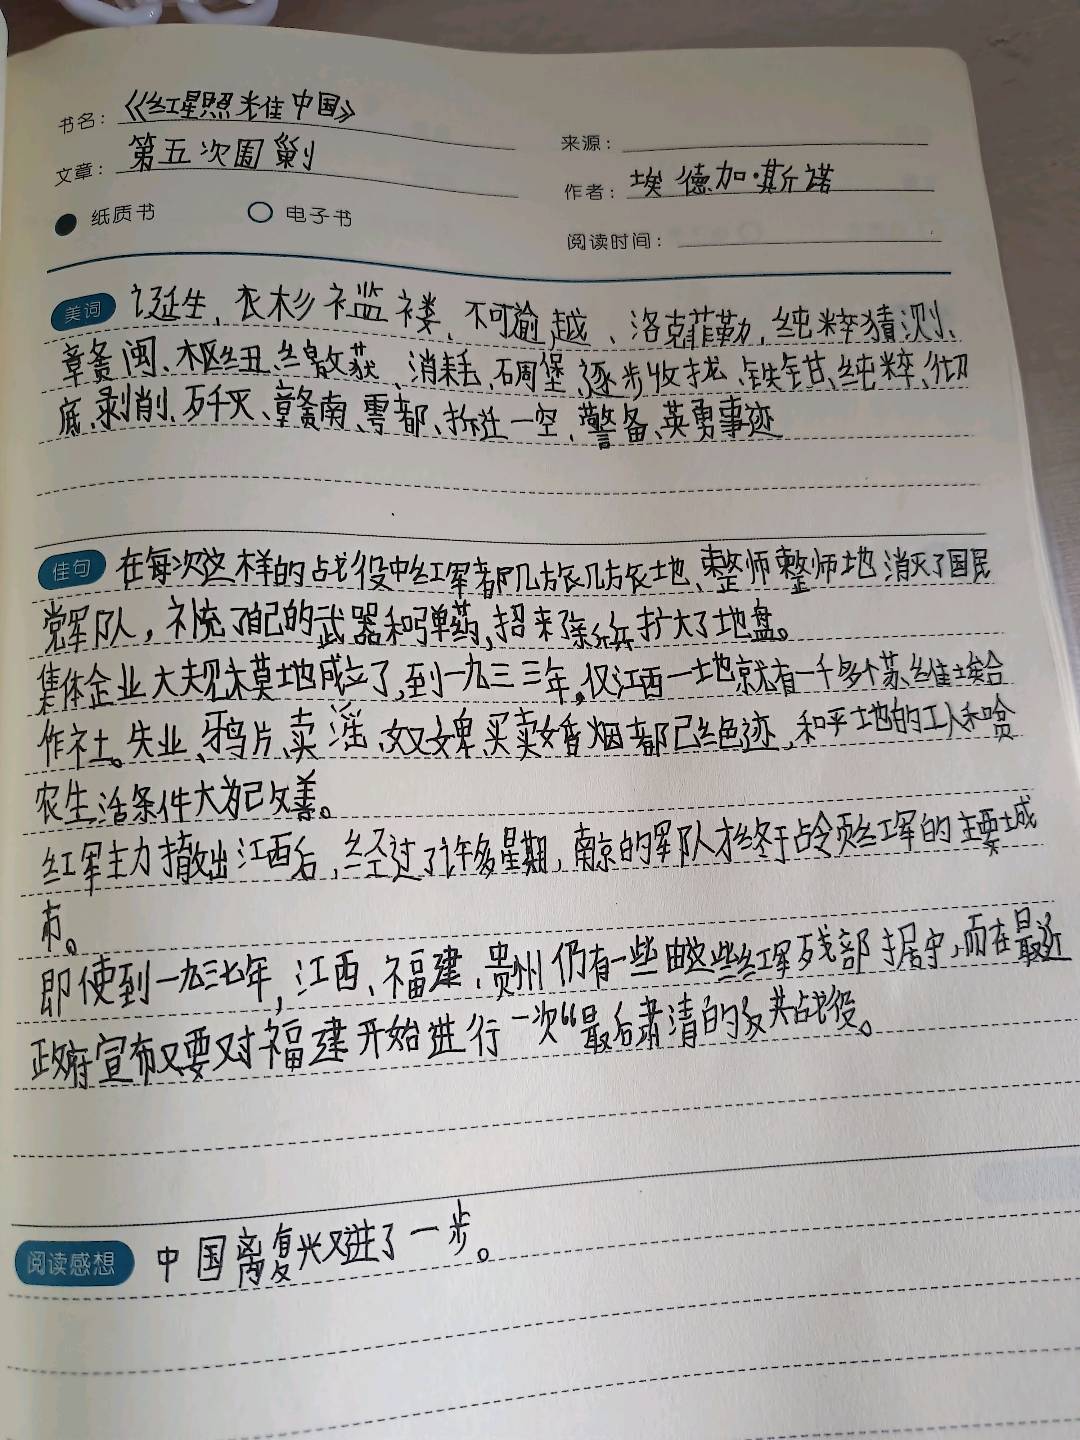 书名：《红星照耀中国》
来源：
文章：第五次围剿
作者：埃德加·斯诺
纸质书 电子书
阅读时间：
美词 诞生、衣衫褴褛、不可逾越、洛克菲勒、纯粹猜测、
赣闽、枢纽、缴获、消耗、碉堡、逐步收拢、铁钳、纯粹、彻
底、剥削、歼灭、赣南、雩都、拆迁一空、警备、英勇事迹
佳句 在每次这样的战役中红军都几方依几方依土地、整师整师地消灭了国民
党军队，补充了自己的武器和弹药，招来了新兵扩大了地盘。
集体企业大规模地成立了，到一九三三年，仅江西一地就有一千多个苏维埃合
作社。失业、鸦片、卖淫、奴婢、买卖婚烟都已绝迹，和平地的工人和贫
农生活条件大为已改善。
红军主力撤出江西后，经过了许多星期，南京的军队才终于占领红军的主要城
市。
即使到一九三七年，江西、福建、贵州仍有一些由这些红军残部据守，而在最近
政府宣布又要对福建开始进行一次“最后肃清的反共战役。
阅读感想 中国离复兴又进了一步。